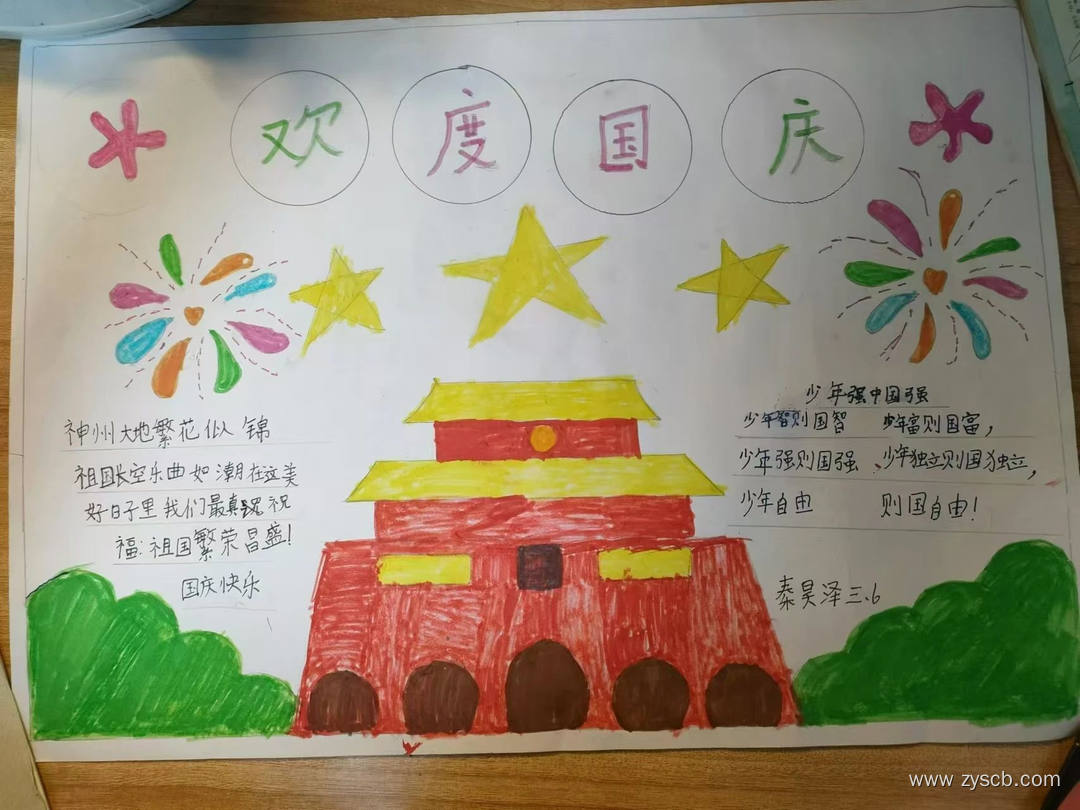 欢度国庆
神州大地繁花似锦
祖国长空乐曲如潮在这美
好日子里我们最真 祝
福:祖国繁荣昌盛!
国庆快乐
少年强中国强
少年智则国智 少年富则国富,
少年强则国强、少年独立则国独立,
少年自由 则国自由!
秦昊泽三、6
www.zyscb.com